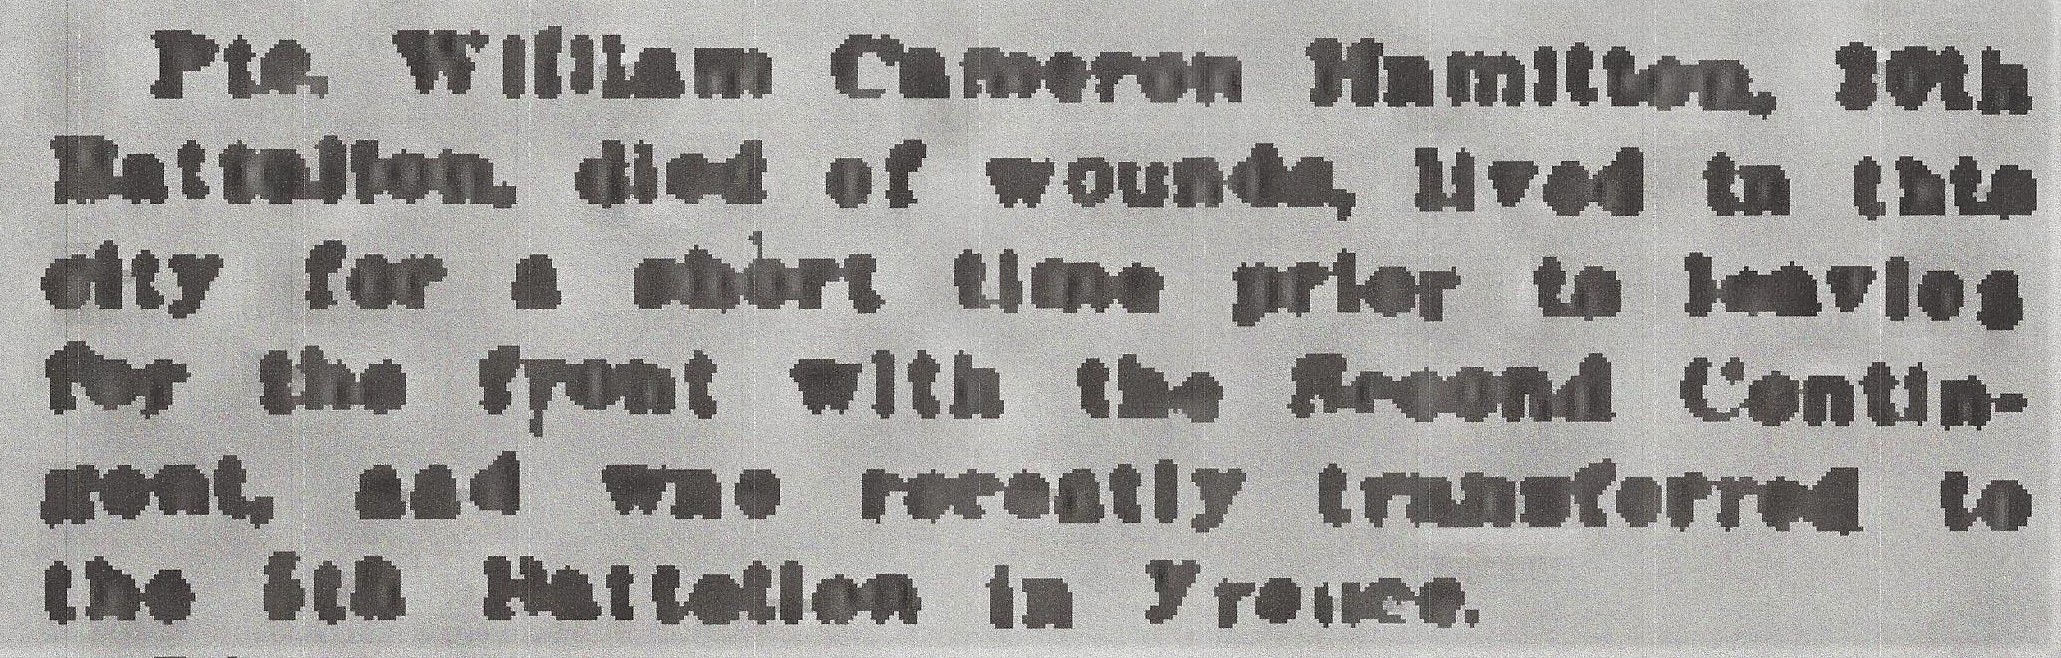 Pte. William Cameron Hamilton, 30th
Battalion, died of wounds, lived in this
city for a short time prior to leaving
for the front with the Second Contin-
gent, and who recently transferred to
the 5th Battalion in France.